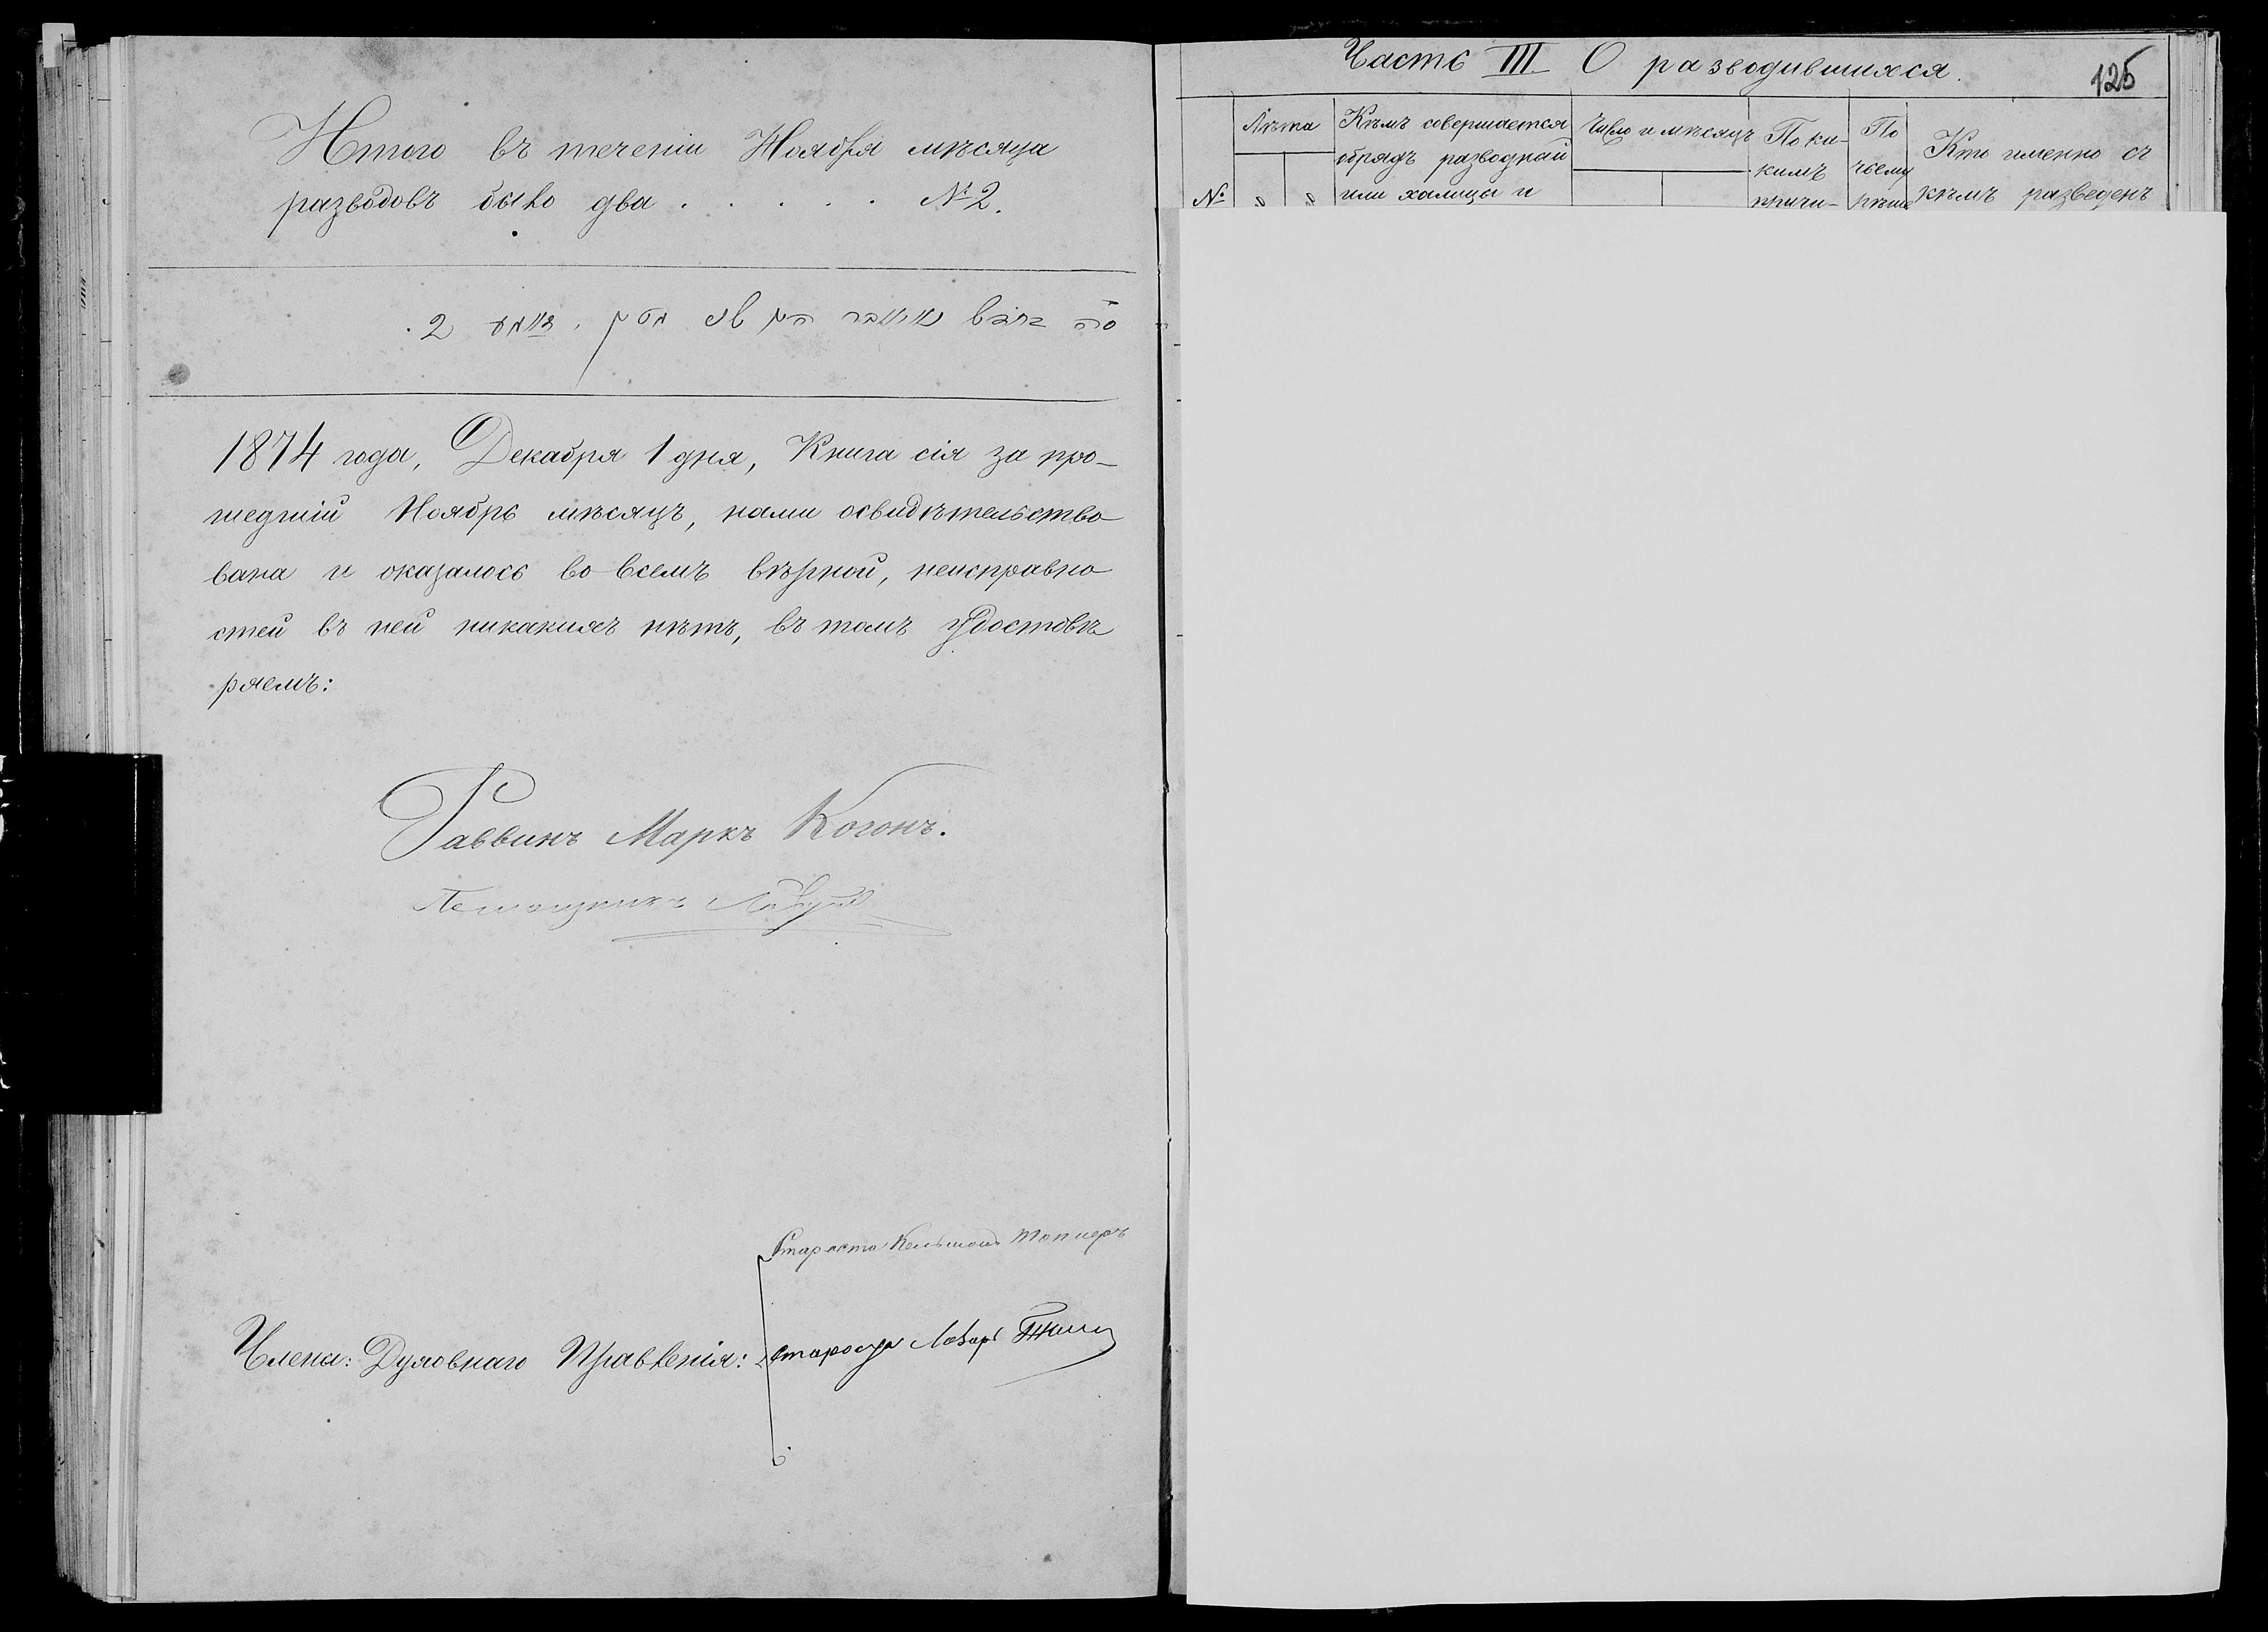 Итого въ теченіи Ноября мѣсяца
разводовъ было два . . . . . № 2.
2
1874 года, Декабря 1 дня, Книга сія за про-
шедшій Ноябрь мѣсяцъ, нами освидѣтельство
вана и оказалось во всемъ вѣрной, неисправно
стей въ ней никакихъ нѣтъ, въ томъ удостовѣ
ряемъ:
Раввинъ Маркъ Когонъ.
Помощникъ
Староста
Члена: Духовнаго Правленія:
староста Лазарь
Часть III О разводившихся.
125
№
Лѣта
Кѣмъ совершается
обрядъ разводный
или халицы и
Число и мѣсяцъ
По ка-
кимъ
причи-
По
чьему
рѣше
Кто именно съ
кѣмъ разведенъ